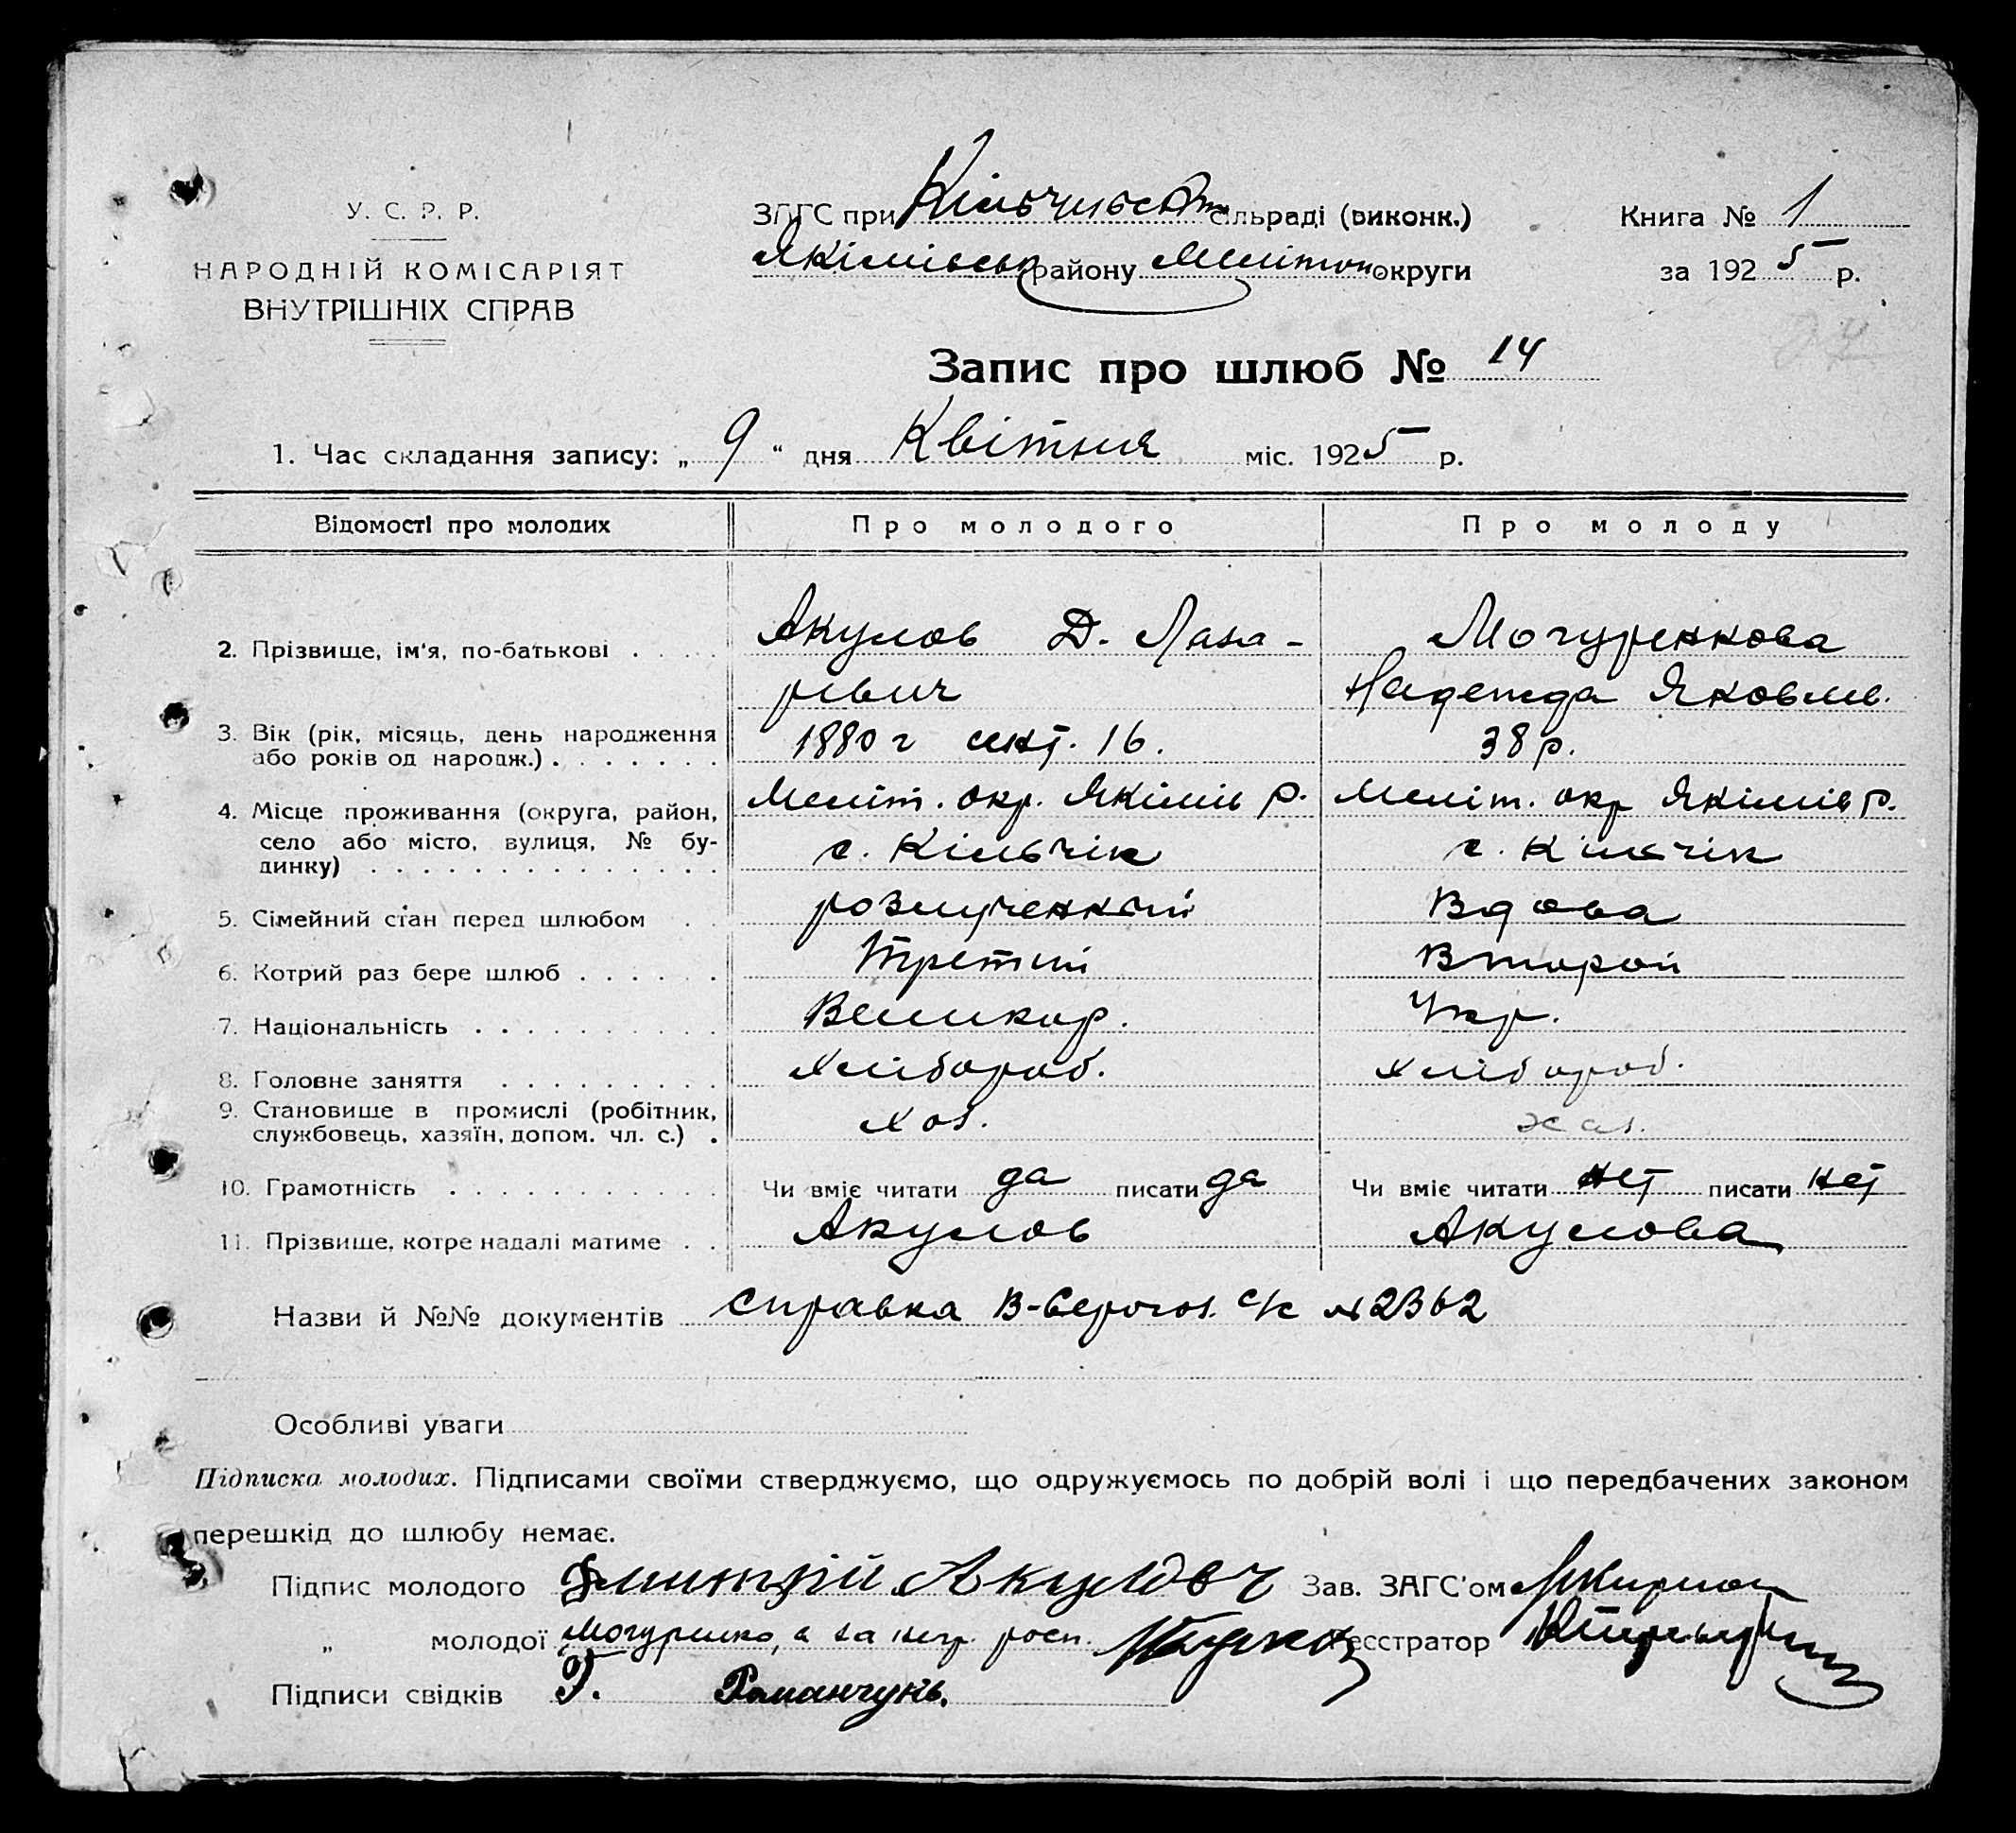 У. С. Р. Р.
НАРОДНІЙ КОМІСАРІЯТ
ВНУТРІШНІХ СПРАВ
ЗАГС при сільраді (виконк.)
Якімівськ району Мелітоп округи
Книга № 1
за 1925 р.
Запис про шлюб № 14
1. Час складання запису: „ 9 “ дня Квітня міс. 1925 р.
Відомості про молодих Про молодого Про молоду
2. Прізвище, ім'я, по-батькові Акулов Д. Лаза- Могуренкова
ревич Надежда Яковлев.
3. Вік (рік, місяць, день народження
або років од народж.) 1880 г сент. 16. 38 р.
4. Місце проживання (округа, район, Меліт. окр. Якімів р. Меліт. окр Якімів р.
село або місто, вулиця, № бу- с. Кільчік с. Кільчік
динку)
5. Сімейний стан перед шлюбом розлученний Вдова
6. Котрий раз бере шлюб Третий Второй
7. Національність Великор. Укр.
8. Головне заняття Хлібороб. Хлібороб.
9. Становище в промислі (робітник, Хоз. Хаз.
службовець, хазяїн, допом. чл. с.)
10. Грамотність Чи вміє читати да писати да Чи вміє читати нет писати нет
11. Прізвище, котре надалі матиме Акулов Акулова
Назви й №№ документів Справка В-Серогоз. с/с № 2362
Особливі уваги
Підписка молодих. Підписами своїми стверджуємо, що одружуємось по добрій волі і що передбачених законом
перешкід до шлюбу немає.
Підпис молодого Дмитрій Акулов Зав. ЗАГС'ом
„ молодої а за негр. росп. Реєстратор
Підписи свідків Г. Романчукъ.